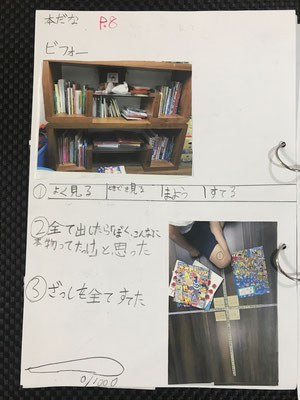 本だな P.8
ビフォー
① よく見る ときどき見る まよう すてる
②全て出したら「ぼく、こんなに
本物ってたっけ」と思った
③ざっしを全てすてた